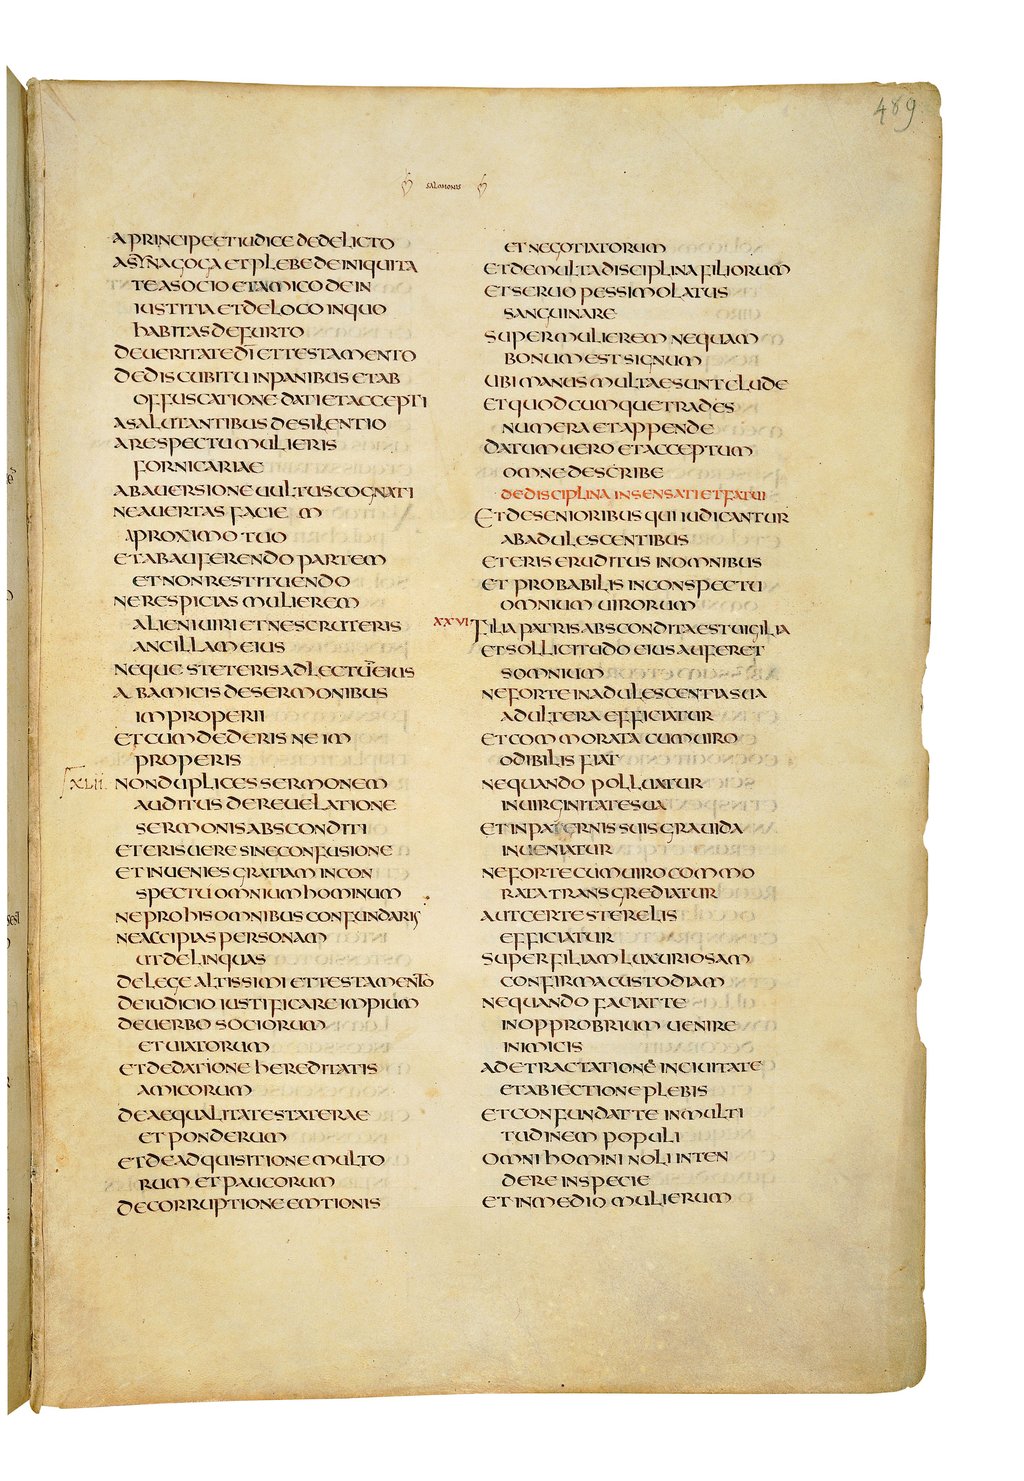 489
SALOMONIS
A PRINCIPE ET IUDICE DE DELICTO
A SYNAGOGA ET PLEBE DE INIQUITA
TE A SOCIO ET AMICO DE IN
IUSTITIA ET DE LOCO IN QUO
HABITAS DE FURTO
DE UERITATE DĪ ET TESTAMENTO
DE DISCUBITU IN PANIBUS ET AB
OFFUSCATIONE DATI ET ACCEPTI
A SALUTANTIBUS DE SILENTIO
A RESPECTU MULIERIS
FORNICARIAE
AB AUERSIONE UULTUS COGNATI
NE AUERTAS FACIEM
A PROXIMO TUO
ET AB AUFERENDO PARTEM
ET NON RESTITUENDO
NE RESPICIAS MULIEREM
ALIENI UIRI ET NE SCRUTERIS
ANCILLAM EIUS
NEQUE STETERIS AD LECTŪ EIUS
AB AMICIS DE SERMONIBUS
IMPROPERII
ET CUM DEDERIS NE IM
PROPERIS
XLII. NON DUPLICES SERMONEM
AUDITUS DE REUELATIONE
SERMONIS ABSCONDITI
ET ERIS UERE SINE CONFUSIONE
ET INUENIES GRATIAM IN CON
SPECTU OMNIUM HOMINUM
NE PRO HIS OMNIBUS CONFUNDARIS
NE ACCIPIAS PERSONAM
UT DELINQUAS
DE LEGE ALTISSIMI ET TESTAMENTO
DE IUDICIO IUSTIFICARE IMPIUM
DE UERBO SOCIORUM
ET UIATORUM
ET DE DATIONE HEREDITATIS
AMICORUM
DE AEQUALITATE STATERAE
ET PONDERUM
ET DE ADQUISITIONE MULTO
RUM ET PAUCORUM
DE CORRUPTIONE EMTIONIS
ET NEGOTIATORUM
ET DE MULTA DISCIPLINA FILIORUM
ET SERUO PESSIMO LATUS
SANGUINARE
SUPER MULIEREM NEQUAM
BONUM EST SIGNUM
UBI MANUS MULTAE SUNT CLUDE
ET QUODCUMQUE TRADES
NUMERA ET APPENDE
DATUM UERO ET ACCEPTUM
OMNE DESCRIBE
DE DISCIPLINA INSENSATI ET FATUI
ET DE SENIORIBUS QUI IUDICANTUR
AB ADULESCENTIBUS
ET ERIS ERUDITUS IN OMNIBUS
ET PROBABILIS IN CONSPECTU
OMNIUM UIRORUM
XXVI FILIA PATRIS ABSCONDITA EST UIGILIA
ET SOLLICITUDO EIUS AUFERET
SOMNIUM
NE FORTE IN ADULESCENTIA SUA
ADULTERA EFFICIATUR
ET COMMORATA CUM UIRO
ODIBILIS FIAT
NEQUANDO POLLUATUR
IN UIRGINITATE SUA
ET IN PATERNIS SUIS GRAUIDA
INUENIATUR
NE FORTE CUM UIRO COMMO
RATA TRANSGREDIATUR
AUT CERTE STERELIS
EFFICIATUR
SUPER FILIAM LUXURIOSAM
CONFIRMA CUSTODIAM
NEQUANDO FACIAT TE
IN OPPROBRIUM UENIRE
INIMICIS
A DETRACTATIONE IN CIUITATE
ET ABIECTIONE PLEBIS
ET CONFUNDAT TE IN MULTI
TUDINEM POPULI
OMNI HOMINI NOLI INTEN
DERE IN SPECIE
ET IN MEDIO MULIERUM